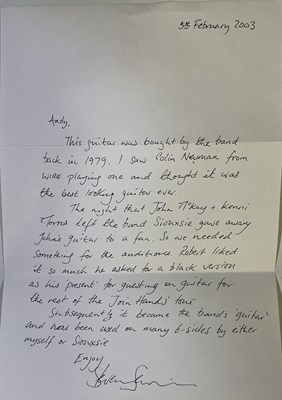 5th February 2003
Andy,
This guitar was bought by the band
back in 1979. I saw Colin Newman from
WIRE playing one and thought it was
the best looking guitar ever.
The night that John McKay + Kenni
Morris left the band Siouxsie gave away
John's guitar to a fan. So we needed
something for the auditions. Robert liked
it so much he asked for a black version
as his 'present' for guesting on guitar for
the rest of the 'Join Hands' tour
Subsequently it became the band's 'guitar'
and has been used on many b-sides by either
myself or Siouxsie
Enjoy